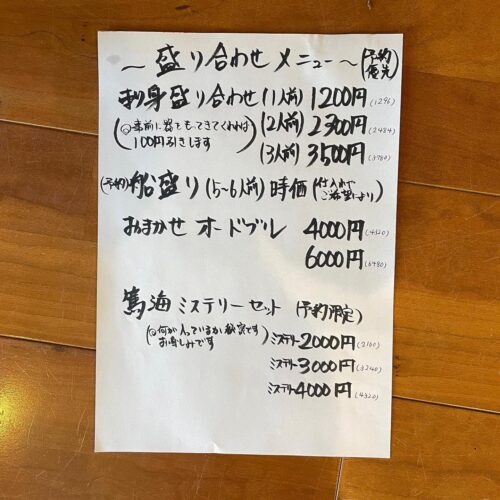 ～盛り合わせ メニュー～ (予約優先)
刺身盛り合わせ (1人前) 1200円 (1296)
(2人前) 2300円 (2484)
(3人前) 3500円 (3780)
(◎事前に器をもってきてくれれば
100円引きします)
(予約)船盛り (5～6人前) 時価 (仕入れやご希望により)
おまかせ オードブル 4000円 (4320)
6000円 (6480)
篤海 ミステリーセット (予約限定)
(◎何が入っているか秘密です
お楽しみです)
ミステリー2000円 (2160)
ミステリー3000円 (3240)
ミステリー4000円 (4320)